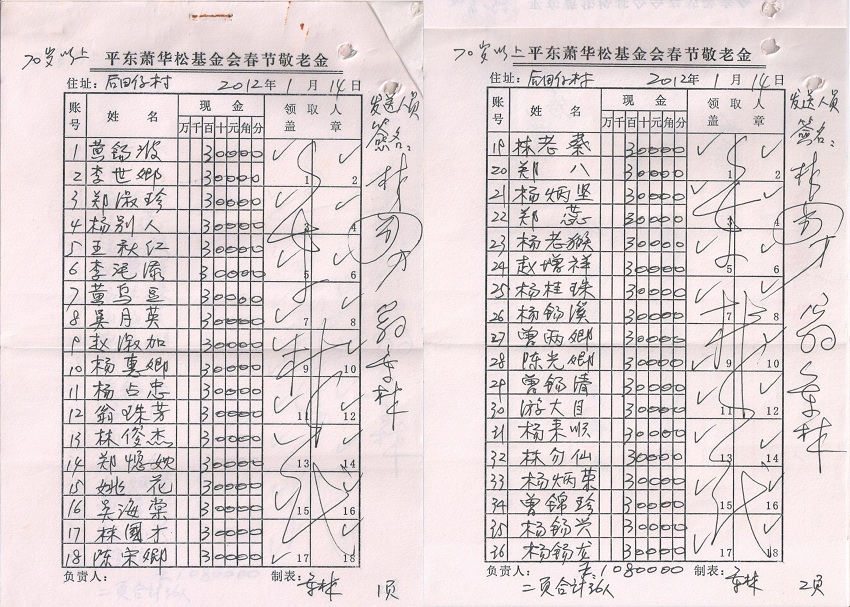 70岁以上 平东萧华松基金会春节敬老金
住址: 后田仔村 2012年1月14日
账号 姓名 现金 领取人盖章
万千百十元角分
1 黄锡波 30000
2 李世卿 30000
3 郑淑珍 30000
4 杨别人 30000
5 王秋仁 30000
6 李 30000
7 黄乌豆 30000
8 吴月英 30000
9 赵淑加 30000
10 杨惠卿 30000
11 杨占忠 30000
12 翁珠芳 30000
13 林俊杰 30000
14 郑 30000
15 姚花 30000
16 吴海棠 30000
17 林国才 30000
18 陈宋卿 30000
1 2
3 4
5 6
7 8
9 10
11 12
13 14
15 16
17 18
发送人员签名:
负责人: 制表: 1页
70岁以上 平东萧华松基金会春节敬老金
住址: 后田仔村 2012年1月14日
账号 姓名 现金 领取人盖章
万千百十元角分
19 林老 30000
20 郑八 30000
21 杨炳坚 30000
22 郑蕊 30000
23 杨老猴 30000
24 赵增祥 30000
25 杨桂珠 30000
26 杨锡溪 30000
27 曾两卿 30000
28 陈光卿 30000
29 曾锡清 30000
30 游大目 30000
31 杨来顺 30000
32 林勿仙 30000
33 杨炳荣 30000
34 曾锦珍 30000
35 杨锡兴 30000
36 杨锡龙 30000
1 2
4
5 6
7 8
9 10
11 12
13 14
15 16
17 18
发送人员签名:
负责人: 1080000 制表: 2页
二页合计36人